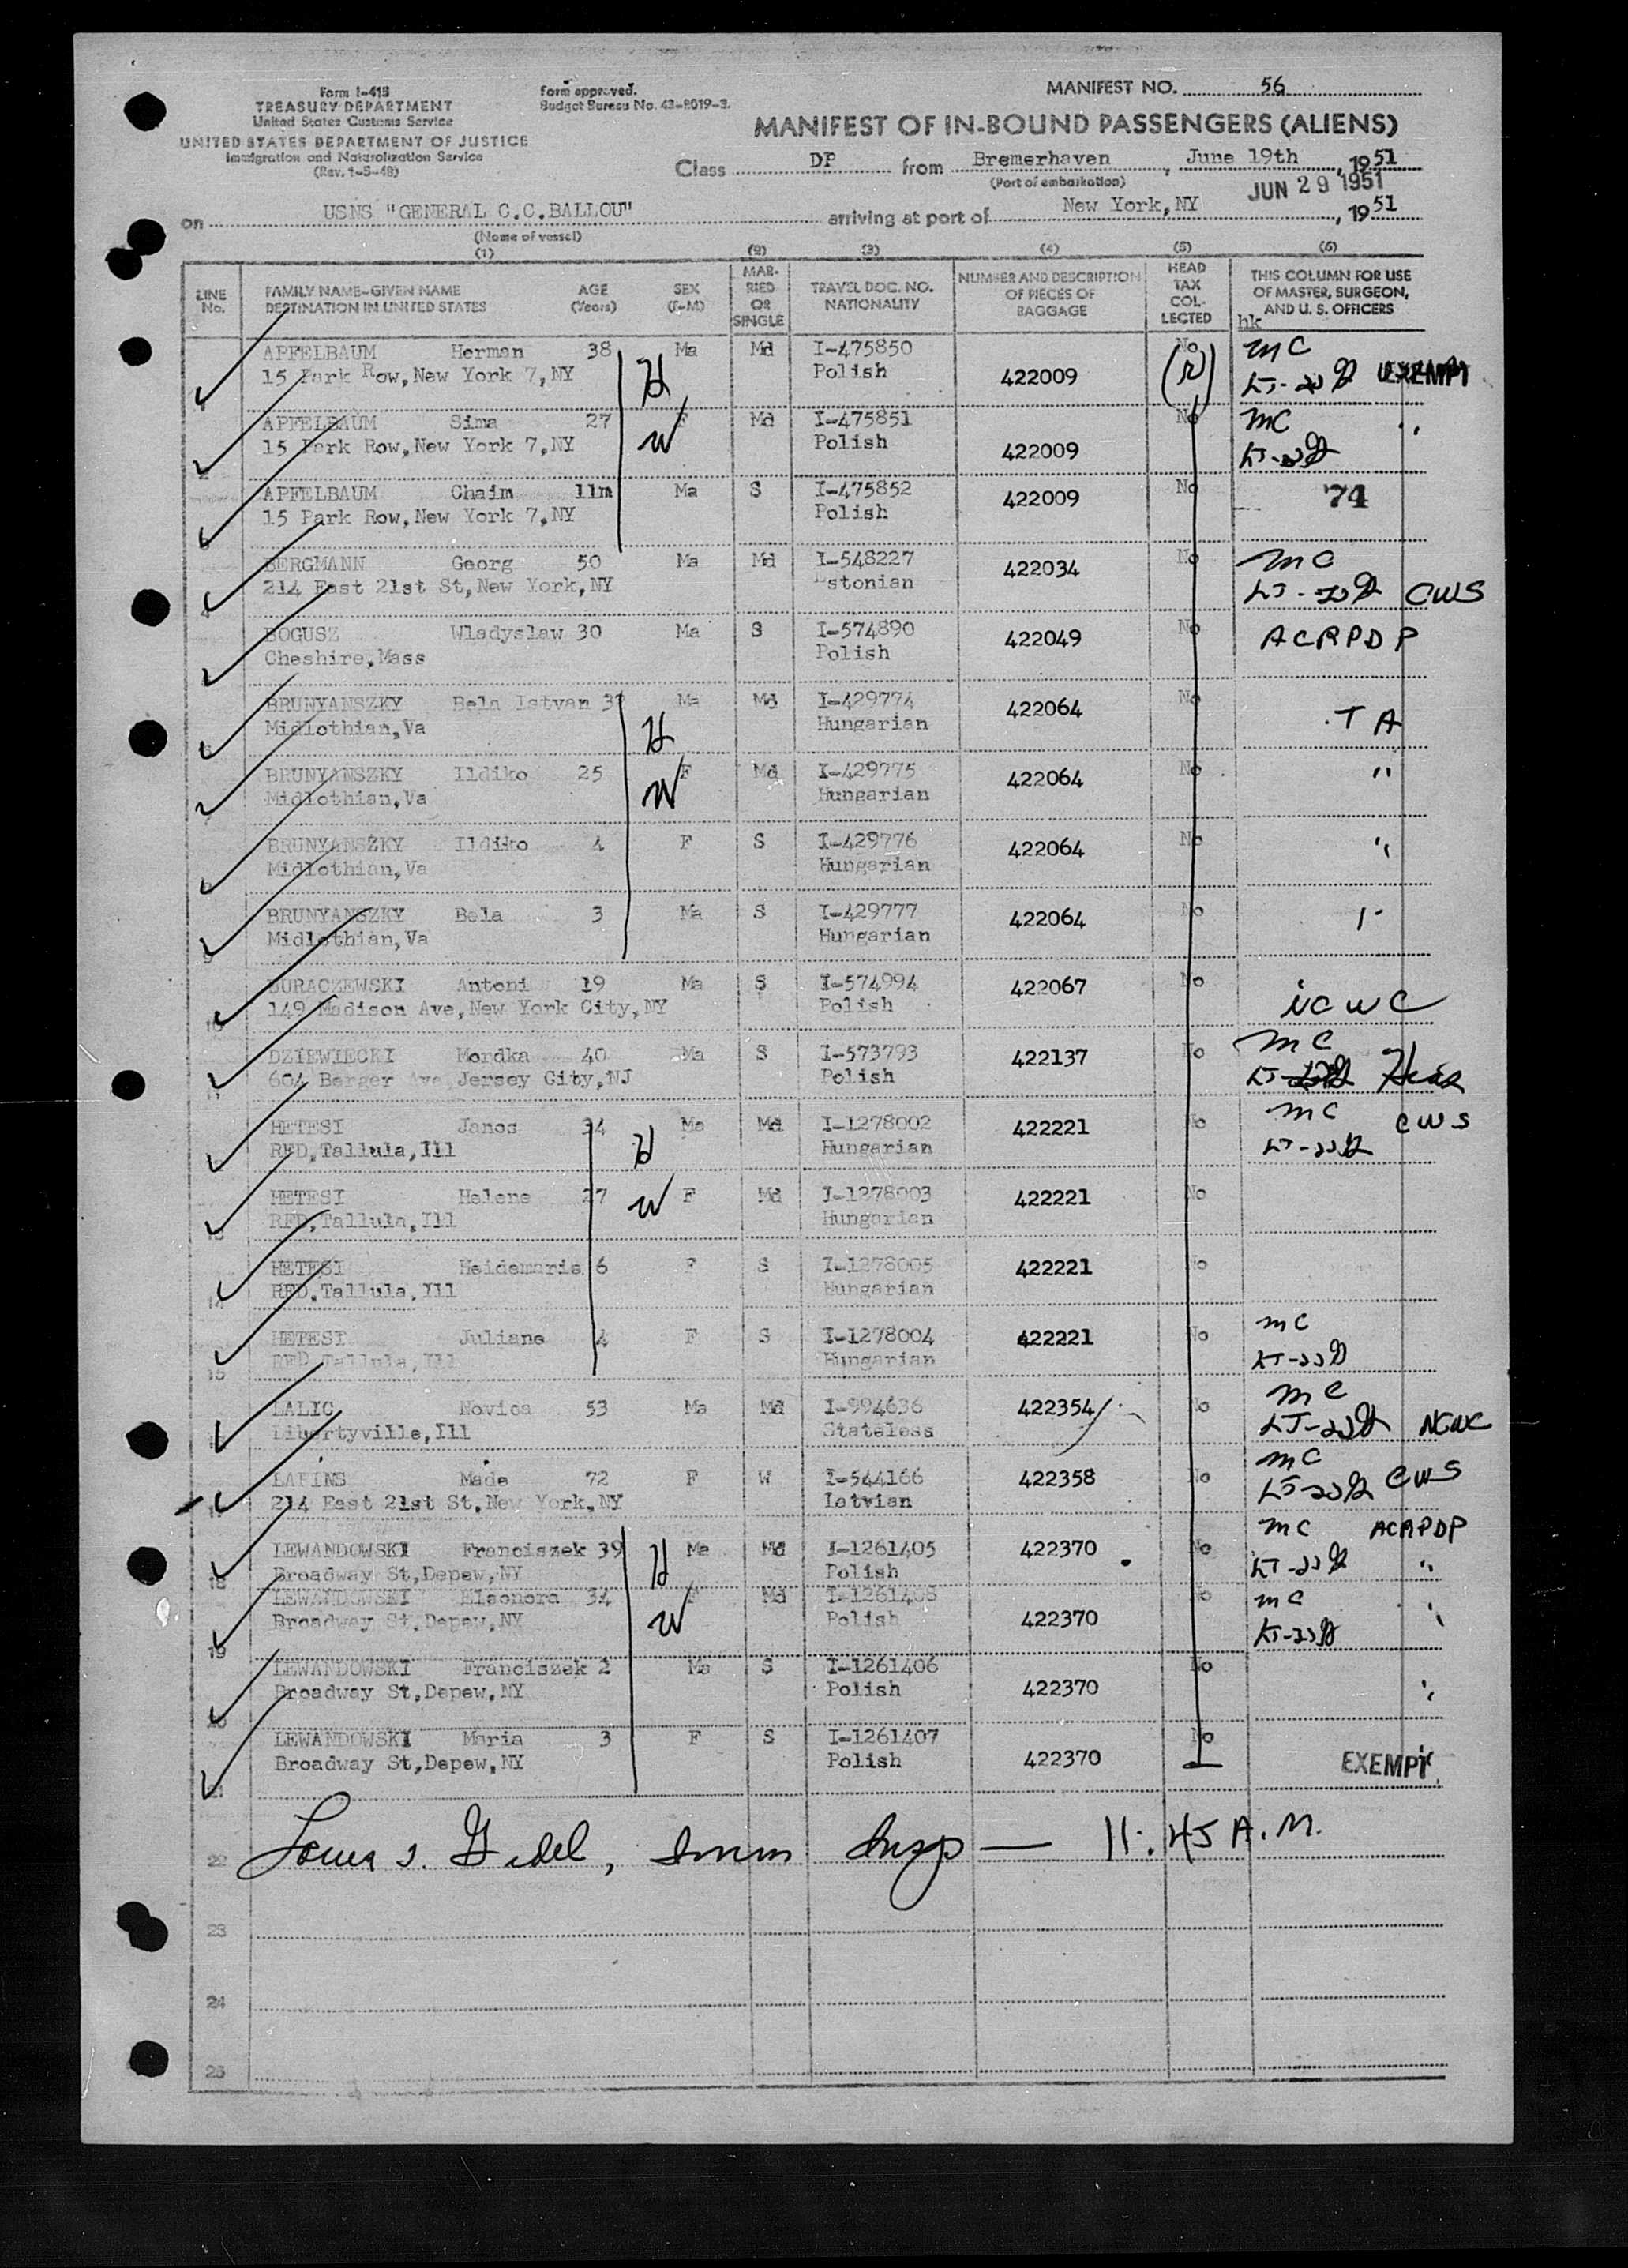 Form I-418
TREASURY DEPARTMENT
United States Customs Service
UNITED STATES DEPARTMENT OF JUSTICE
Immigration and Naturalization Service
(Rev. 1-5-48)
Form approved.
Budget Bureau No. 43-R019-3.
MANIFEST NO. 56
MANIFEST OF IN-BOUND PASSENGERS (ALIENS)
Class DP from Bremerhaven, June 19th, 1951
(Port of embarkation)
JUN 29 1951
on USNS "GENERAL C.C.BALLOU" arriving at port of New York, NY, 1951
(Name of vessel)
(1) (2) (3) (4) (5) (6)
LINE No. FAMILY NAME-GIVEN NAME DESTINATION IN UNITED STATES AGE (Years) SEX (F-M) MARRIED OR SINGLE TRAVEL DOC. NO. NATIONALITY NUMBER AND DESCRIPTION OF PIECES OF BAGGAGE HEAD TAX COLLECTED THIS COLUMN FOR USE OF MASTER, SURGEON, AND U. S. OFFICERS
hk
APFELBAUM Herman 38 H Ma Md I-475850 No MC
15 Park Row, New York 7, NY Polish 422009 EXEMPT
APFELBAUM Sima 27 W F Md I-475851 No MC "
15 Park Row, New York 7, NY Polish 422009
APFELBAUM Chaim 11m Ma S I-475852 422009 No 74
15 Park Row, New York 7, NY Polish
BERGMANN Georg 50 Ma Md I-548227 422034 No MC
214 East 21st St, New York, NY stonian CWS
BOGUSZ Wladyslaw 30 Ma S I-574890 422049 No ACRPDP
Cheshire, Mass Polish
BRUNYANSZKY Bela Istvan Ma Md I-429774 422064 No
Midlothian, Va H Hungarian TA
BRUNYANSZKY Ildiko 25 F Md I-429775 422064 No "
Midlothian, Va W Hungarian
BRUNYANSZKY Ildiko 4 F S I-429776 422064 No "
Midlothian, Va Hungarian
BRUNYANSZKY Bela 3 Ma S I-429777 422064 No "
Midlothian, Va Hungarian
BURACZEWSKI Antoni 19 Ma S I-574994 422067 No
149 Madison Ave, New York City, NY Polish NCWC
DZIEWIECKI Mordka 40 Ma S I-573793 422137 No MC
604 Berger Ave, Jersey City, NJ Polish Hias
HETESI Janos 34 Ma Md I-1278002 422221 No MC CWS
RFD, Tallula, Ill H Hungarian
HETESI Helene 27 W F Md I-1278003 422221 No
RFD, Tallula, Ill Hungarian
HETESI Heidemarie 6 F S I-1278005 422221 No
RFD, Tallula, Ill Hungarian
HETESI Juliane 4 F S I-1278004 422221 No MC
RFD, Tallula, Ill Hungarian
LALIC Novica 53 Ma Md I-994636 422354 No MC
Libertyville, Ill Stateless NCWC
LAPINS Made 72 F W I-544166 422358 No MC
214 East 21st St, New York, NY Latvian CWS
LEWANDOWSKI Franciszek 39 H Ma Md I-1261405 422370 No MC ACRPDP
Broadway St, Depew, NY Polish "
LEWANDOWSKI Eleonora 34 F Md No MC "
Broadway St, Depew, NY W Polish 422370
19
LEWANDOWSKI Franciszek 2 Ma S I-1261406 No
Broadway St, Depew, NY Polish 422370 "
20
LEWANDOWSKI Maria 3 F S I-1261407 No
Broadway St, Depew, NY Polish 422370 EXEMPT
21
22 11:45 A.M.
23
24
25